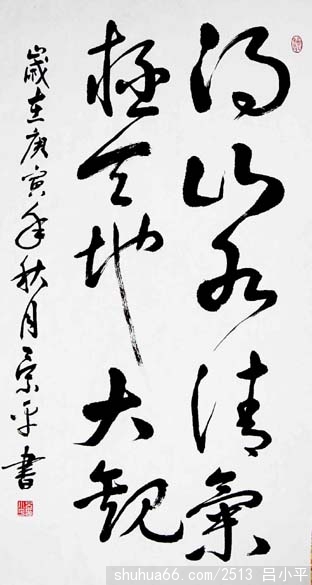 得山水清氣
極天地大觀
歲在庚寅年秋月景平書
shuhua66.com/2513 吕小平